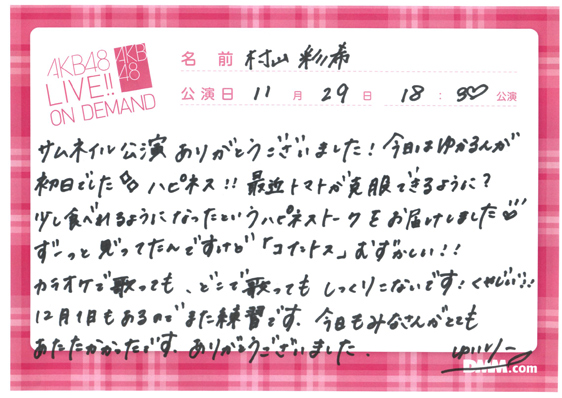 AKB48
LIVE!!
ON DEMAND
AKB
48
名前 村山 彩希
公演日 11月29日 18:30公演
サムネイル公演 ありがとうございました! 今日はゆかるんが
初日でした ハピネス!! 最近トマトが克服できるように?
少し食べれるようになったというハピネストークをお届けしました
ずーっと思ってたんですけど「コイントス」むずかしい!!
カラオケで歌っても、どこで歌ってもしっくりこないです! くやしい!!
12月1日もあるのでまた練習です。今日もみなさんがとても
あたたかかったです。ありがとうございました。
ゆいりー
DMM.com